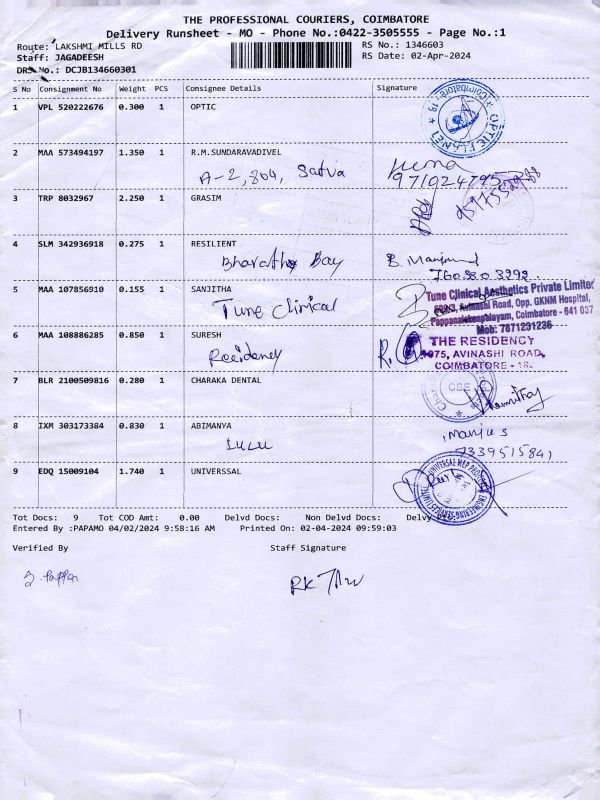 THE PROFESSIONAL COURIERS, COIMBATORE
Delivery Runsheet - MO - Phone No.:0422-3505555 - Page No.:1
Route: LAKSHMI MILLS RD
RS No.: 1346603
Staff: JAGADEESH
RS Date: 02-Apr-2024
DRS No.: DCJB134660301
S No Consignment No Weight PCS Consignee Details Signature
1 VPL 520222676 0.300 1 OPTIC
OPTIC PLANET Coimbatore - 18
2 MAA 573494197 1.350 1 R.M.SUNDARAVADIVEL
A-2, 804, Satva
3 TRP 8032967 2.250 1 GRASIM
4 SLM 342936918 0.275 1 RESILIENT
Bharath Bay
5 MAA 107856910 0.155 1 SANJITHA
Tune Clinical
Tune Clinical Aesthetics Private Limited
Avinashi Road, Opp. GKNM Hospital,
Pappanaickenpalayam, Coimbatore - 641 037
Mob: 7871231236
6 MAA 108886285 0.850 1 SURESH
Residency
THE RESIDENCY
1075, AVINASHI ROAD,
COIMBATORE - 18.
7 BLR 2100509816 0.280 1 CHARAKA DENTAL
CBE
8 IXM 303173384 0.830 1 ABIMANYA
LULU
7339515841
9 EDQ 15009104 1.740 1 UNIVERSSAL
UNIVERSAL MEP ENGINEERING SERVICES
Tot Docs: 9 Tot COD Amt: 0.00 Delvd Docs: Non Delvd Docs:
Entered By :PAPAMO 04/02/2024 9:58:16 AM Printed On: 02-04-2024 09:59:03
Verified By Staff Signature